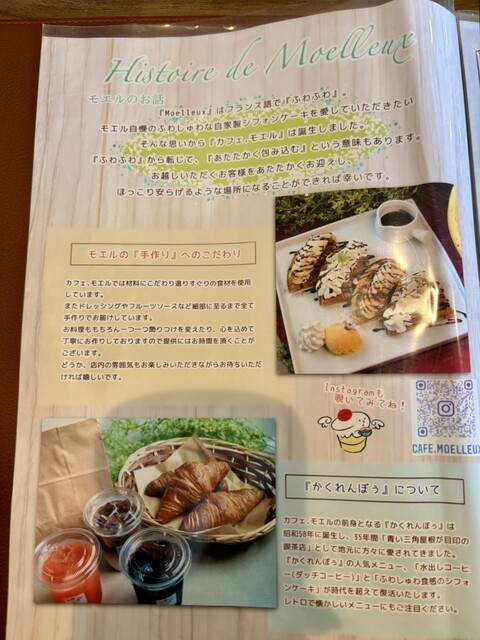 Histoire de Moelleux
モエルのお話
『Moelleux』はフランス語で『ふわふわ』。
モエル自慢のふわしゅわな自家製シフォンケーキを愛していただきたい
そんな思いから『カフェ.モエル』は誕生しました。
『ふわふわ』から転じて、『あたたかく包み込む』という意味もあります。
お越しいただくお客様をあたたかくお迎えし、
ほっこり安らげるような場所になることができれば幸いです。
モエルの『手作り』へのこだわり
カフェ.モエルでは材料にこだわり選りすぐりの食材を使用
しています。
またドレッシングやフルーツソースなど細部に至るまで全て
手作りでお届けしています。
お料理ももちろん一つ一つ飾りつけを変えたり、心を込めて
丁寧にお作りしておりますので提供にはお時間を頂くことが
ございます。
どうか、店内の雰囲気もお楽しみいただきながらお待ちいただ
ければ嬉しいです。
Instagramも
覗いてみてね!
CAFE.MOELLEUX
『かくれんぼぅ』について
カフェ.モエルの前身となる『かくれんぼぅ』は
昭和58年に誕生し、35年間「青い三角屋根が目印の
喫茶店」として地元に方々に愛されてきました。
『かくれんぼぅ』の人気メニュー、「水出しコーヒ
ー(ダッチコーヒー)」と「ふわしゅわ食感のシフォ
ンケーキ」が時代を超えて復活いたします。
レトロで懐かしいメニューにもご注目ください。